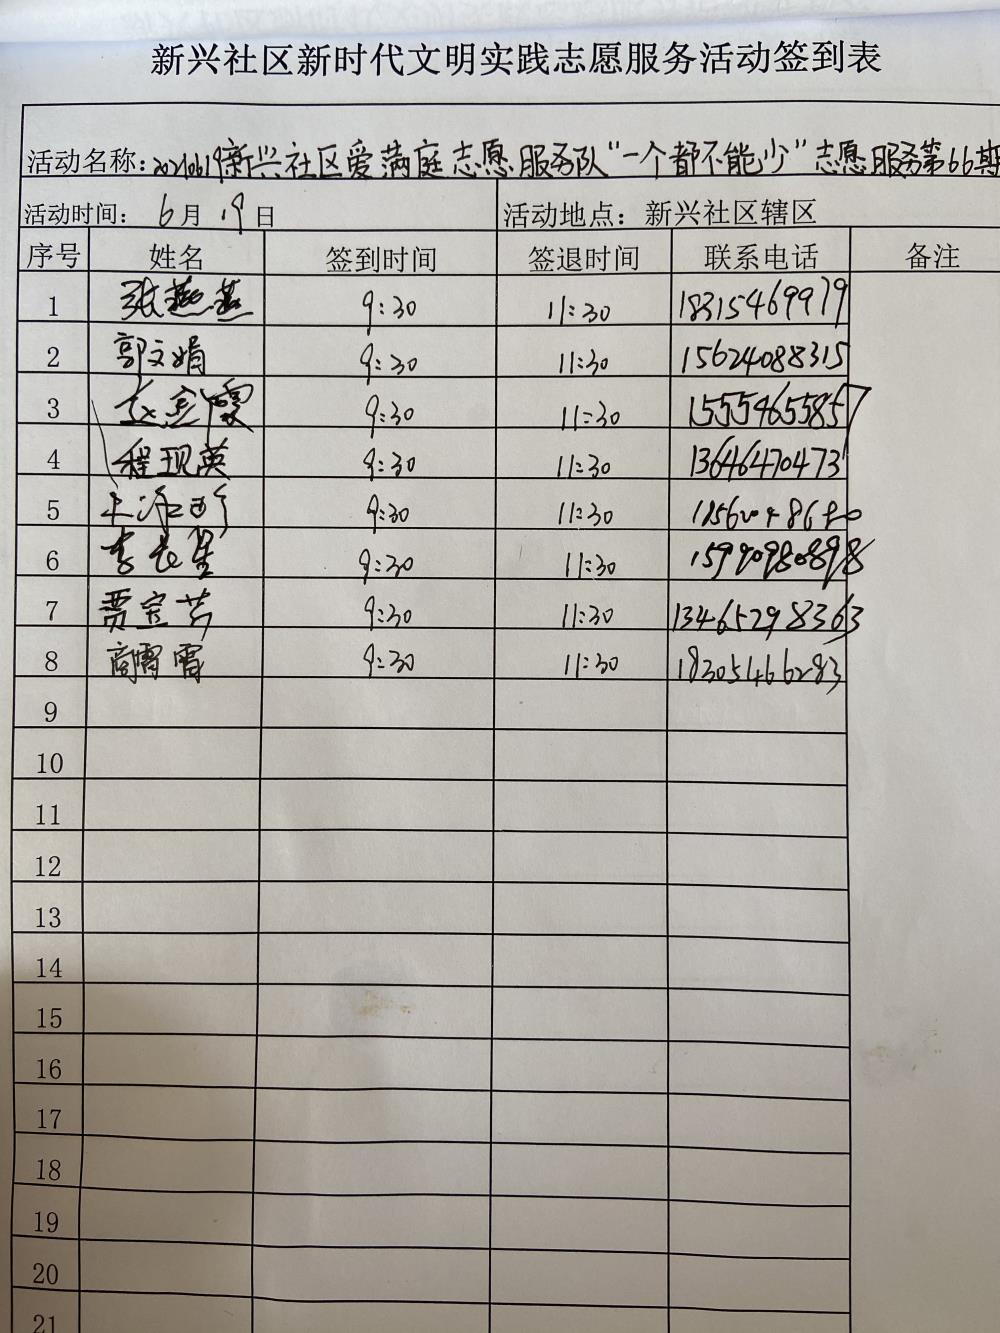 新兴社区新时代文明实践志愿服务活动签到表
活动名称：20210619新兴社区爱满庭志愿服务队“一个都不能少”志愿服务第66期
活动时间： 6月19日 活动地点：新兴社区辖区
序号 姓名 签到时间 签退时间 联系电话 备注
1 张燕燕 9:30 11:30 18315469979
2 郭文娟 9:30 11:30 15624088315
3 9:30 11:30 15554655857
4 程现英 9:30 11:30 13646470473
5 9:30 11:30
6 李长星 9:30 11:30
7 贾宝芳 9:30 11:30 13465298363
8 商雷雷 9:30 11:30 18305466283
9
10
11
12
13
14
15
16
17
18
19
20
21